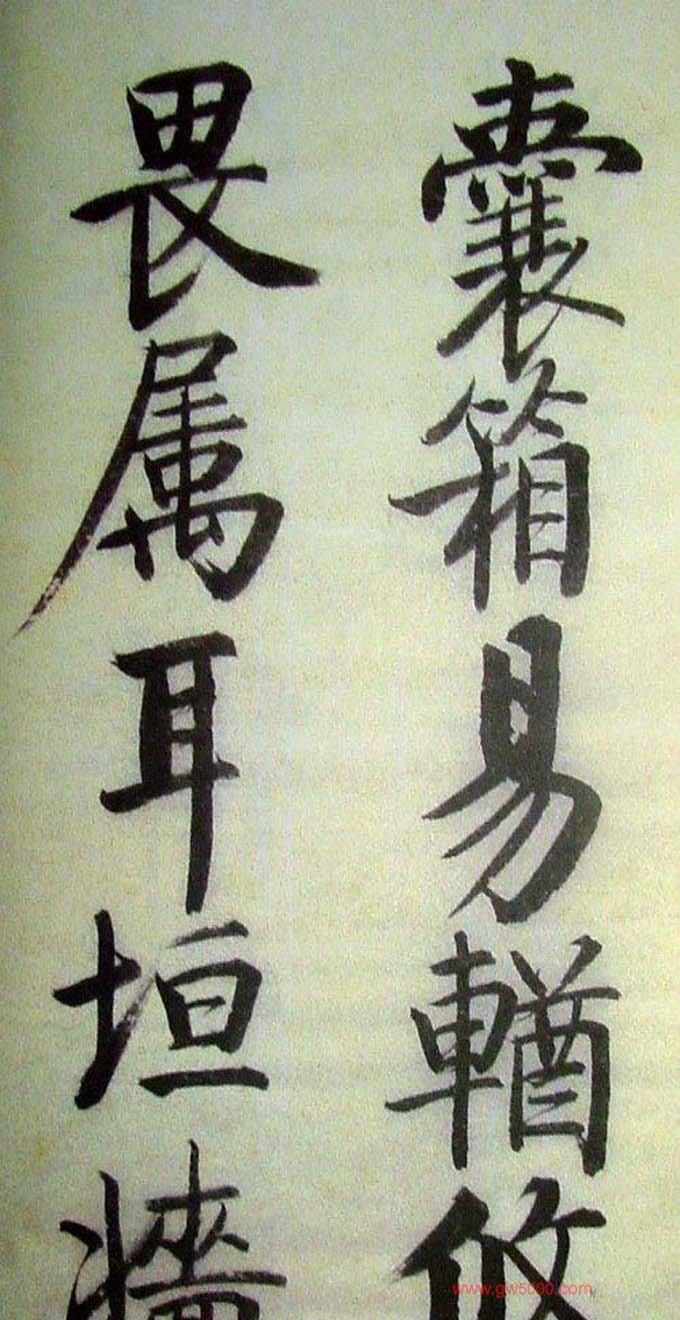 囊箱易輶攸
畏属耳垣墻
www.gw5000.com